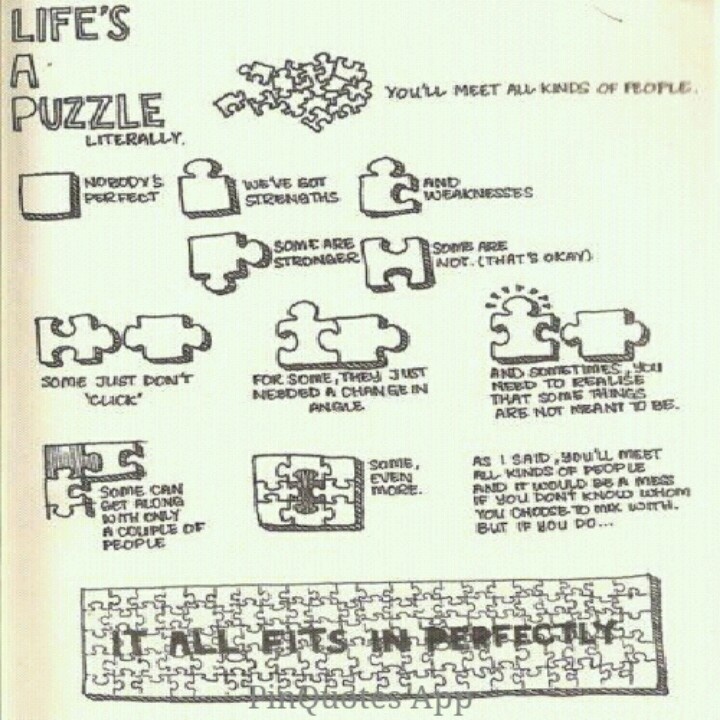 LIFE'S
A
PUZZLE
LITERALLY.
YOU'LL MEET ALL KINDS OF PEOPLE.
NOBODY'S
PERFECT
WE'VE GOT
STRENGTHS
AND
WEAKNESSES
SOME ARE
STRONGER
SOME ARE
NOT. (THAT'S OKAY)
SOME JUST DON'T
'CLICK'
FOR SOME, THEY JUST
NEEDED A CHANGE IN
ANGLE.
AND SOMETIMES, YOU
NEED TO REALISE
THAT SOME THINGS
ARE NOT MEANT TO BE.
SOME CAN
GET ALONG
WITH ONLY
A COUPLE OF
PEOPLE
SOME,
EVEN
MORE.
AS I SAID, YOU'LL MEET
ALL KINDS OF PEOPLE
AND IT WOULD BE A MESS
IF YOU DON'T KNOW WHOM
YOU CHOOSE TO MIX WITH.
BUT IF YOU DO...
IT ALL FITS IN PERFECTLY
PinQuotes App